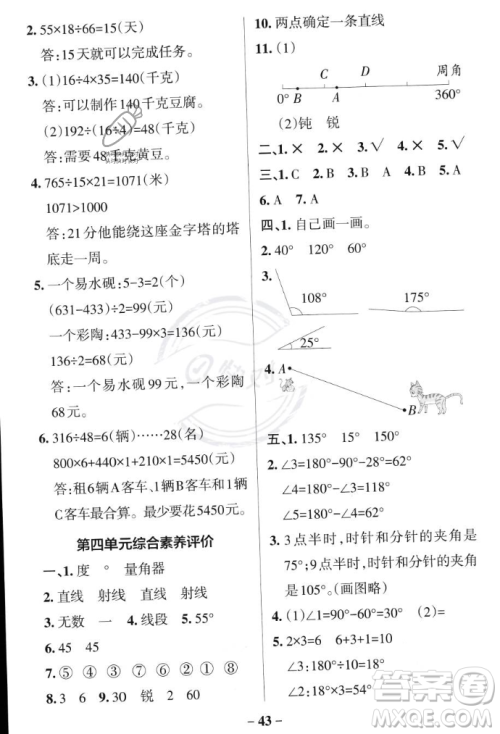 2. 55×18÷66=15(天)
答：15天就可以完成任务。
3. (1)16÷4×35=140(千克)
答：可以制作140千克豆腐。
(2)192÷(16÷4)=48(千克)
答：需要48千克黄豆。
4. 765÷15×21=1071(米)
1071>1000
答：21分他能绕这座金字塔的塔
底走一周。
5. 一个易水砚：5-3=2(个)
(631-433)÷2=99(元)
一个彩陶：433-99×3=136(元)
136÷2=68(元)
答：一个易水砚99元，一个彩陶
68元。
6. 316÷48=6(辆)……28(名)
800×6+440+1×210=5450(元)
答：租6辆A客车、1辆B客车和1辆
C客车最合算。最少要花5450元。
第四单元综合素养评价
一、1. 度 ° 量角器
2. 直线 射线 射线 直线
3. 无数 一 4. 线段 5. 55°
6. 45 45
7. ⑤ ④ ② ⑥ ③ ① ⑧
8. 3 6 9. 30 锐 2 90
10. 两点确定一条直线
11. (1)
C D 周角
0° B A 360°
(2)钝 锐
二、1. × 2. × 3. × 4. √ 5. √
三、1. C 2. B 3. B 4. B 5. A
6. A 7. A
四、1. 自己画一画。
2. 40° 120° 60°
3.
108° 175°
25°
4. A
B
五、1. 135° 15° 150°
2. ∠3=180°-90°-28°=62°
∠4=180°-∠3=118°
∠5=180°-∠4=62°
3. 3点半时，时针和分针的夹角是
75°；9点半时，时针和分针的夹
角是105°。(画图略)
4. (1)∠1=60° (2)∠1=62°
5. 2×3=6 6+3+1=10
∠3：180°÷10=18°
∠2：18°×3=54°
∠1：18°×6=108°
答案圈
MXQE.COM
- 43 -